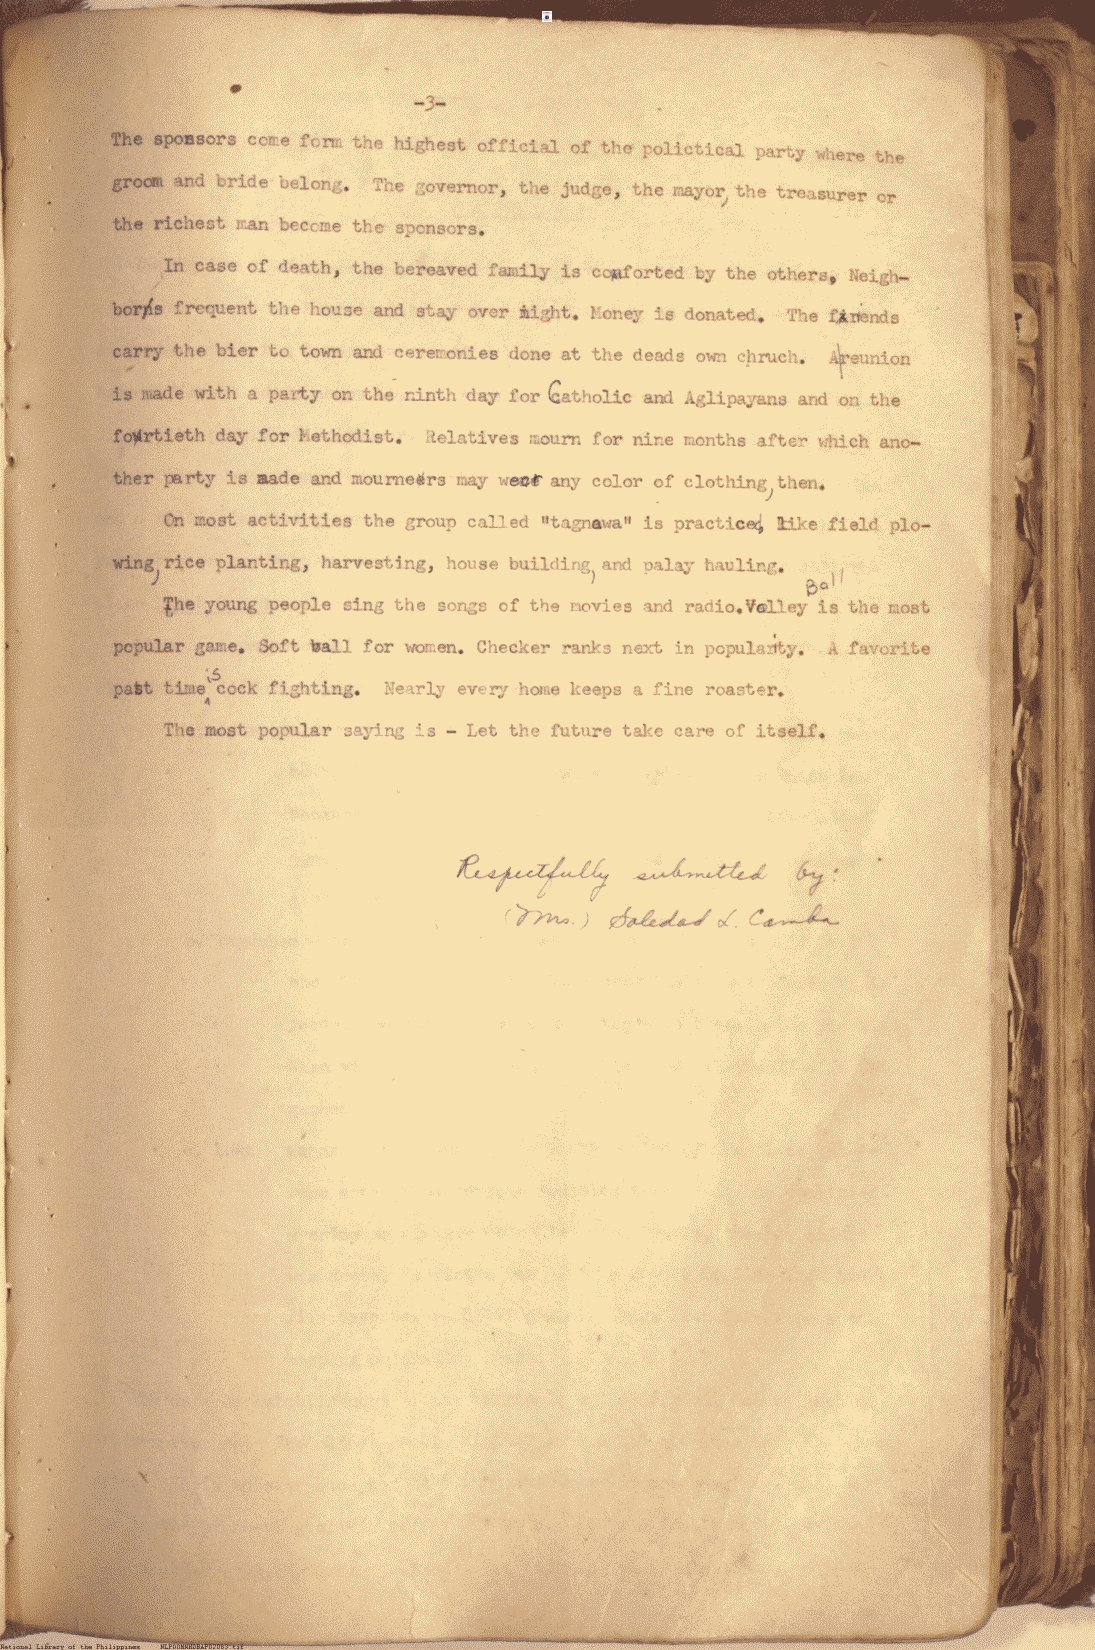 -3-
The sponsors come form the highest official of the polictical party where the
groom and bride belong. The governor, the judge, the mayor, the treasurer or
the richest man become the sponsors.
In case of death, the bereaved family is comforted by the others. Neigh-
bors frequent the house and stay over night. Money is donated. The firends
carry the bier to town and ceremonies done at the deads own chruch. A reunion
is made with a party on the ninth day for Catholic and Aglipayans and on the
fourtieth day for Methodist. Relatives mourn for nine months after which ano-
ther party is made and mourners may wear any color of clothing, then.
On most activities the group called "tagnawa" is practiced, like field plo-
wing, rice planting, harvesting, house building, and palay hauling.
The young people sing the songs of the movies and radio. Volley Ball is the most
popular game. Soft ball for women. Checker ranks next in popularity. A favorite
past time is cock fighting. Nearly every home keeps a fine roaster.
The most popular saying is - Let the future take care of itself.
Respectfully submitted by:
(Mrs.) Soledad L. Camba
National Library of the Philippines